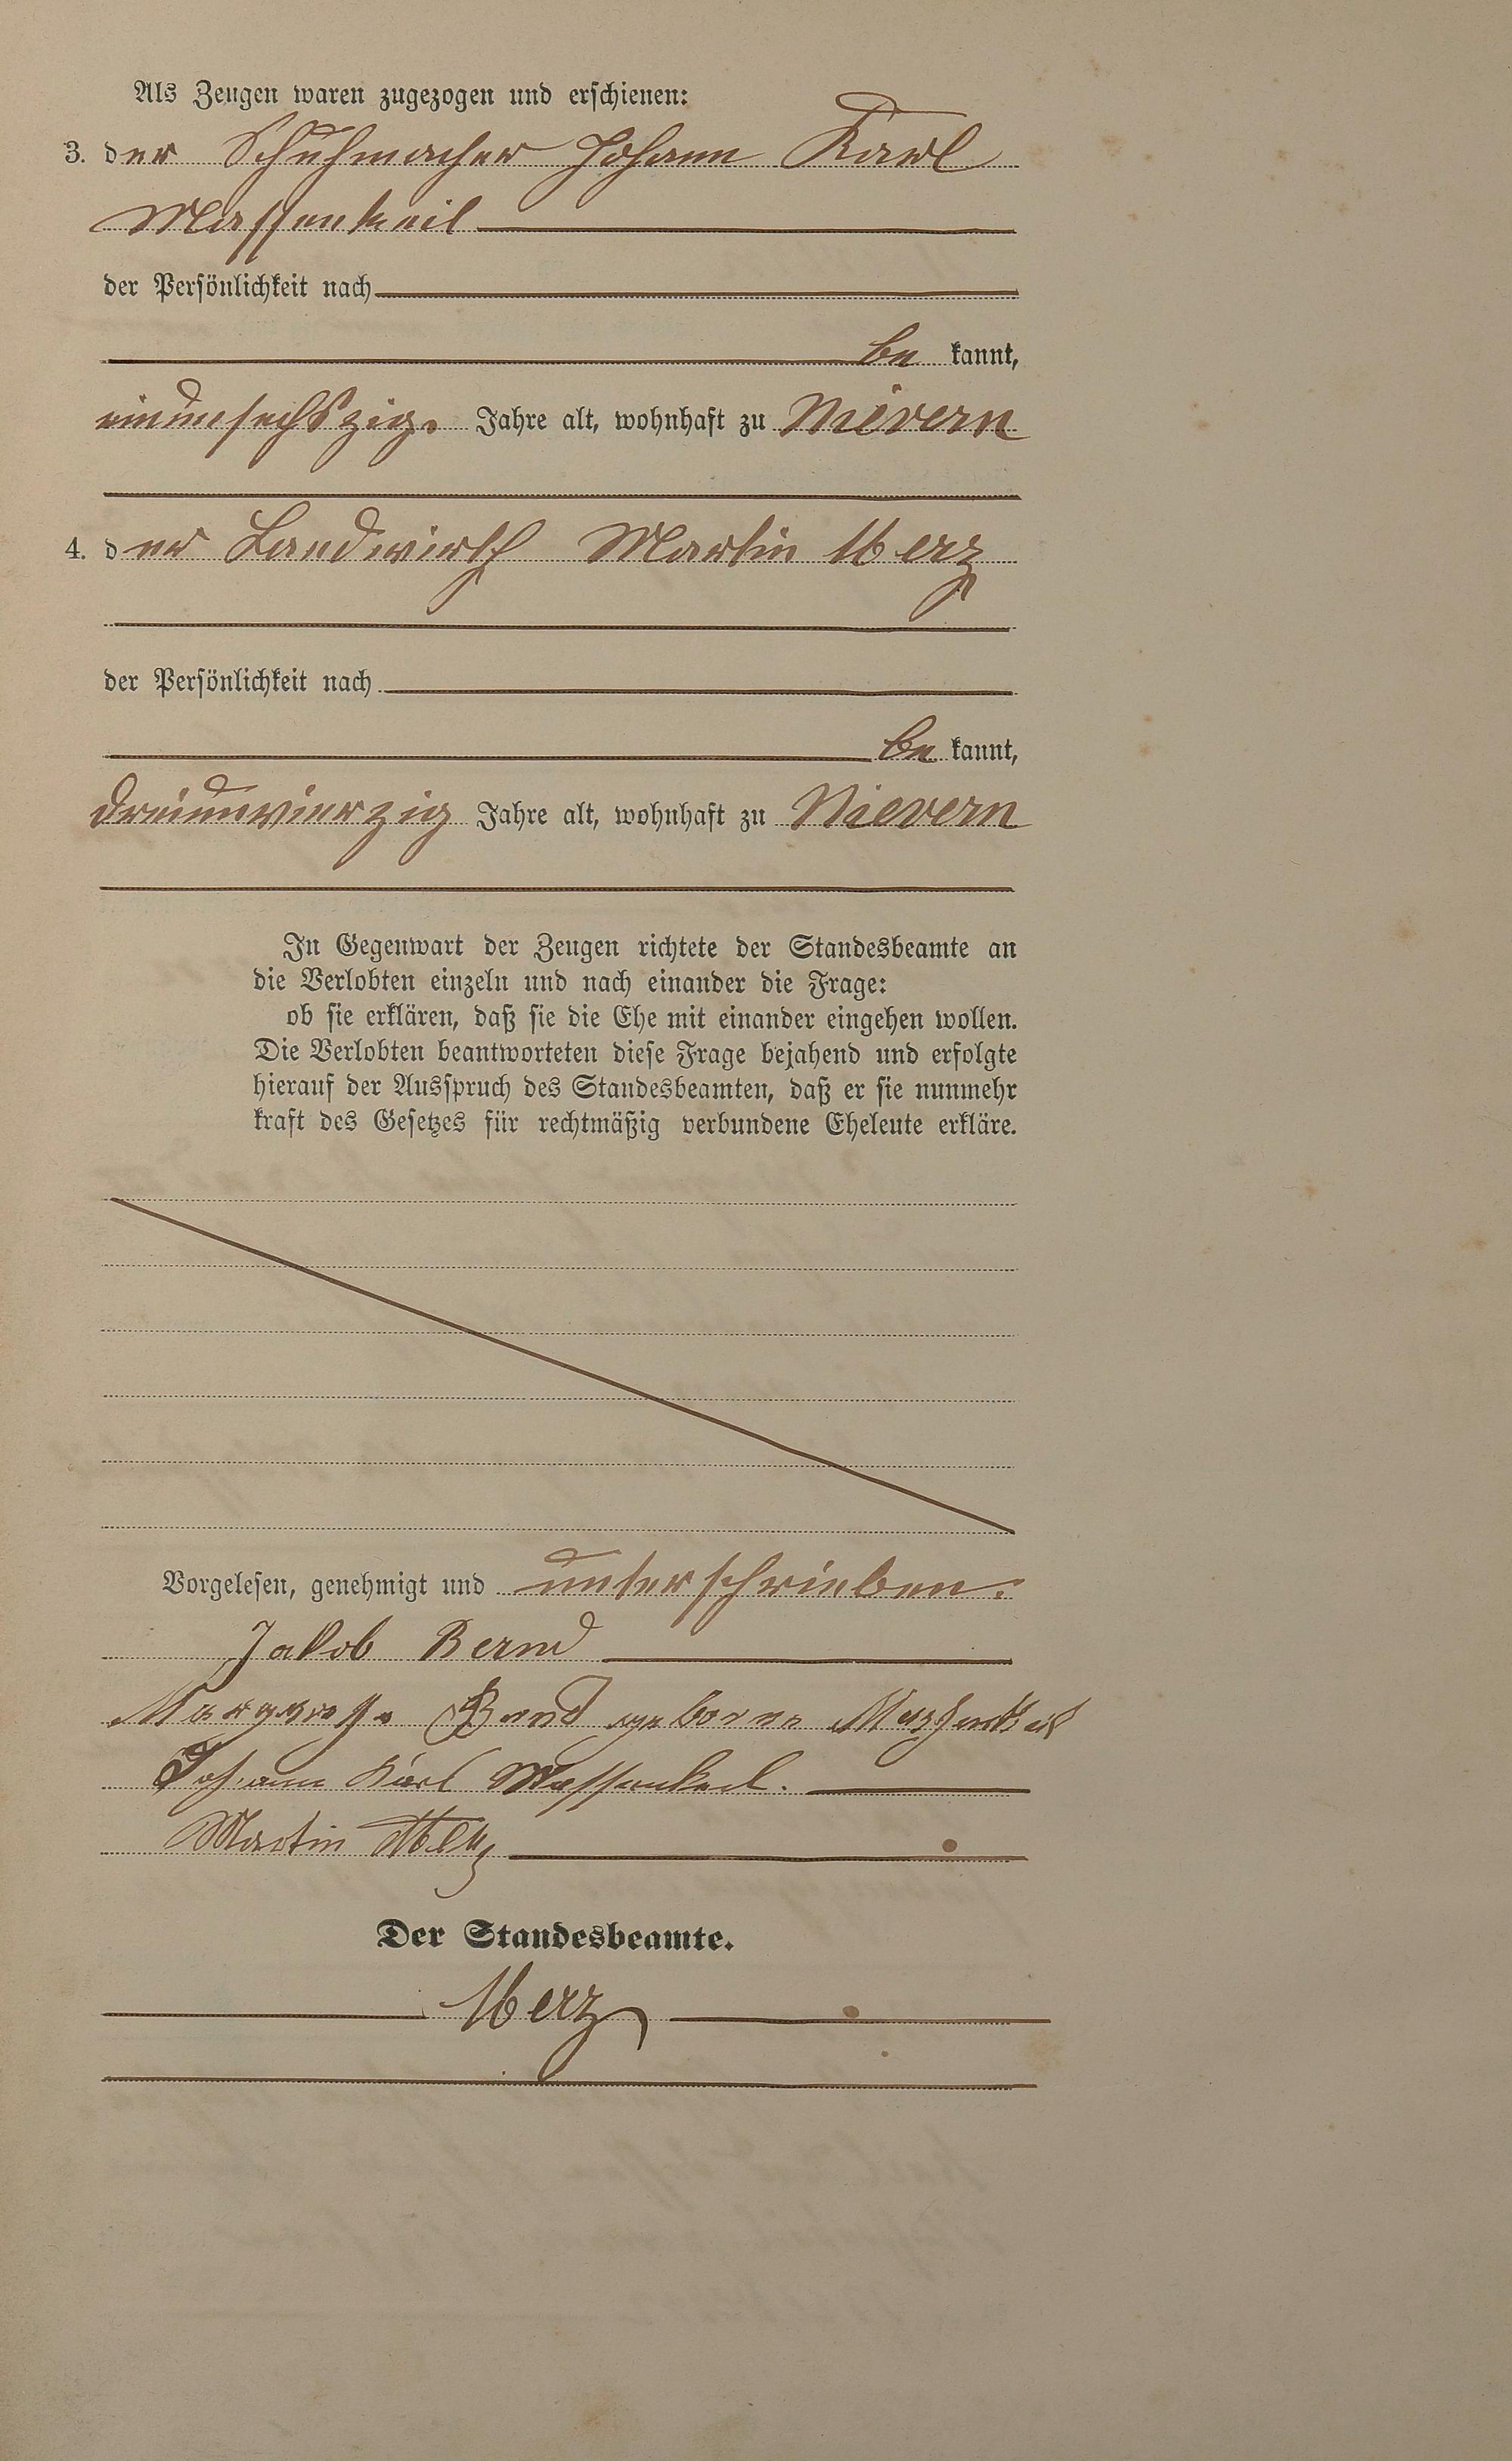 Als Zeugen waren zugezogen und erschienen:
3. der Schuhmacher Johann Karl
Massenkeil
der Persönlichkeit nach
be kannt,
einunsechszig Jahre alt, wohnhaft zu Nievern
4. der Landwirth Martin Merz
der Persönlichkeit nach
be kannt,
dreiunvierzig Jahre alt, wohnhaft zu Nievern
In Gegenwart der Zeugen richtete der Standesbeamte an
die Verlobten einzeln und nach einander die Frage:
ob sie erklären, daß sie die Ehe mit einander eingehen wollen.
Die Verlobten beantworteten diese Frage bejahend und erfolgte
hierauf der Ausspruch des Standesbeamten, daß er sie nunmehr
kraft des Gesetzes für rechtmäßig verbundene Eheleute erkläre.
Vorgelesen, genehmigt und unterschrieben:
Jakob Bernd
geborne
Johann Karl Massenkeil.
Martin Merz
Der Standesbeamte.
Merz